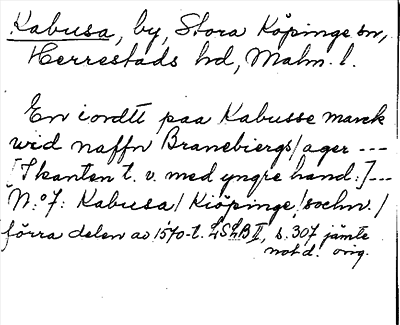 Kabusa, by, Stora Köpinge sn,
Herrestads hd, Malm. l.
En iordtt paa Kabusse marck
wid naffn Branebiergs/ager ---
[I kanten t. v. med yngre hand:]---
N:o 7: Kabusa/ Kiöpinge/sochn./
förra delen av 1570-t. LSLB II, s. 307 jämte
not d. orig.